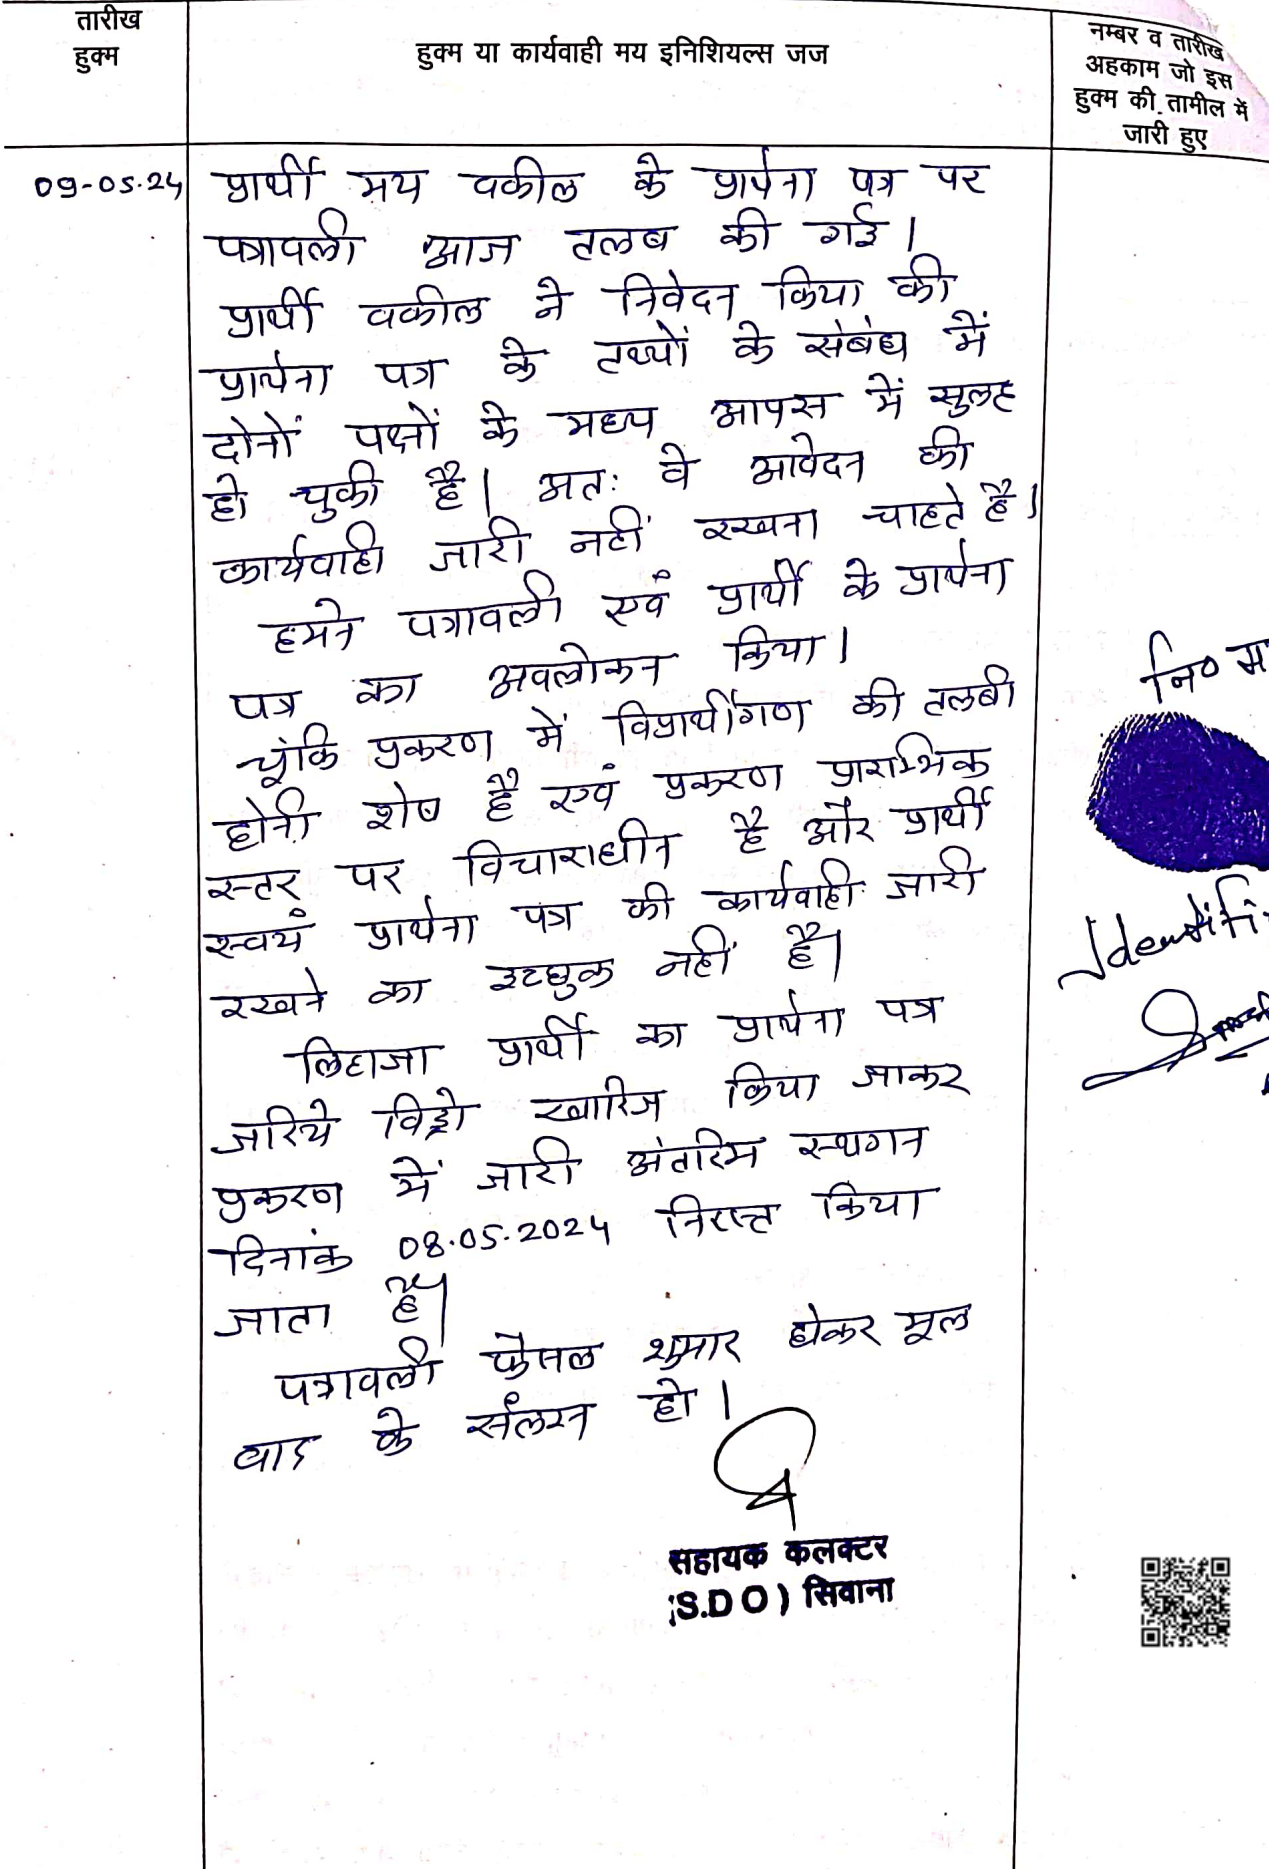 तारीख
हुक्म
हुक्म या कार्यवाही मय इनिशियल्स जज
नम्बर व तारीख
अहकाम जो इस
हुक्म की तामील में
जारी हुए
09-05-24
प्रार्थी मय वकील के प्रार्थना पत्र पर
पत्रावली आज तलब की गई।
प्रार्थी वकील ने निवेदन किया की
प्रार्थना पत्र के तथ्यों के संबंध में
दोनों पक्षों के मध्य आपस में सुलह
हो चुकी है। अतः वे आवेदन की
कार्यवाही जारी नहीं रखना चाहते है।
हमने पत्रावली एवं प्रार्थी के प्रार्थना
पत्र का अवलोकन किया।
चूंकि प्रकरण में विप्रार्थीगण की तलबी
होनी शेष है एवं प्रकरण प्रारम्भिक
स्तर पर विचाराधीन है और प्रार्थी
स्वयं प्रार्थना पत्र की कार्यवाही जारी
रखने का इच्छुक नहीं है।
लिहाजा प्रार्थी का प्रार्थना पत्र
जरिये विड्रो खारिज किया जाकर
प्रकरण में जारी अंतरिम स्थगन
दिनांक 08.05.2024 निरस्त किया
जाता है।
पत्रावली फैसल शुमार होकर मूल
वाद के संलग्न हो।
सहायक कलक्टर
(S.D O) सिवाना
नि०
Identifi